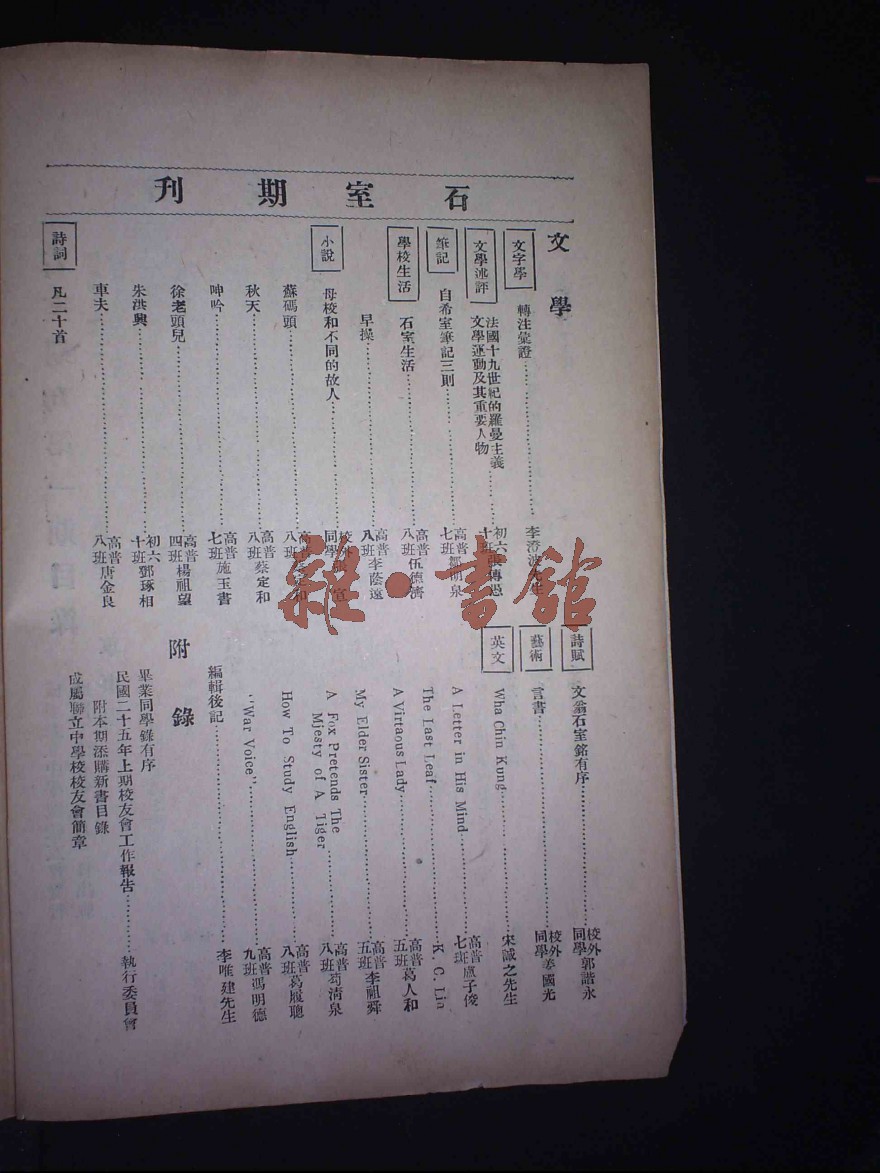 石室期刊
文學
文字學
轉注彙證 李澄波先生
文學述評
法國十九世紀的羅曼主義
文學運動及其重要人物 初六十班 張傳愚
筆記
自希室筆記三則 高普七班
學校生活
石室生活 高普八班 伍德濟
早操 高普八班 李蔭遠
小說
母校和不同的故人 校外同學 宣
蘇碼頭 高普八班 和
秋天 高普八班 蔡定和
呻吟 高普七班 施玉書
徐老頭兒 高普四班 楊祖望
朱洪興 初六十班 鄧琢相
車夫 高普八班 唐金良
詩詞
凡二十首
詩賦
文翁石室銘有序 校外同學 郭誥永
藝術
言書 校外同學 姜國光
英文
Wha Chin Kung 宋誠之先生
A Letter in His Mind 高普七班 盧子俊
The Last Leaf K. C. Lia
A Virtaous Lady 高普五班 葛人和
My Elder Sister 高普五班 李祖舜
A Fox Pretends The
Mjesty of A Tiger 高普八班 苟清泉
How To Study English 高普八班 葛履聰
"War Voice" 高普九班 馮明德
編輯後記 李唯建先生
附錄
畢業同學錄有序
民國二十五年上期校友會工作報告 執行委員會
附本期添購新書目錄
成屬聯立中學校校友會簡章
雜·書館